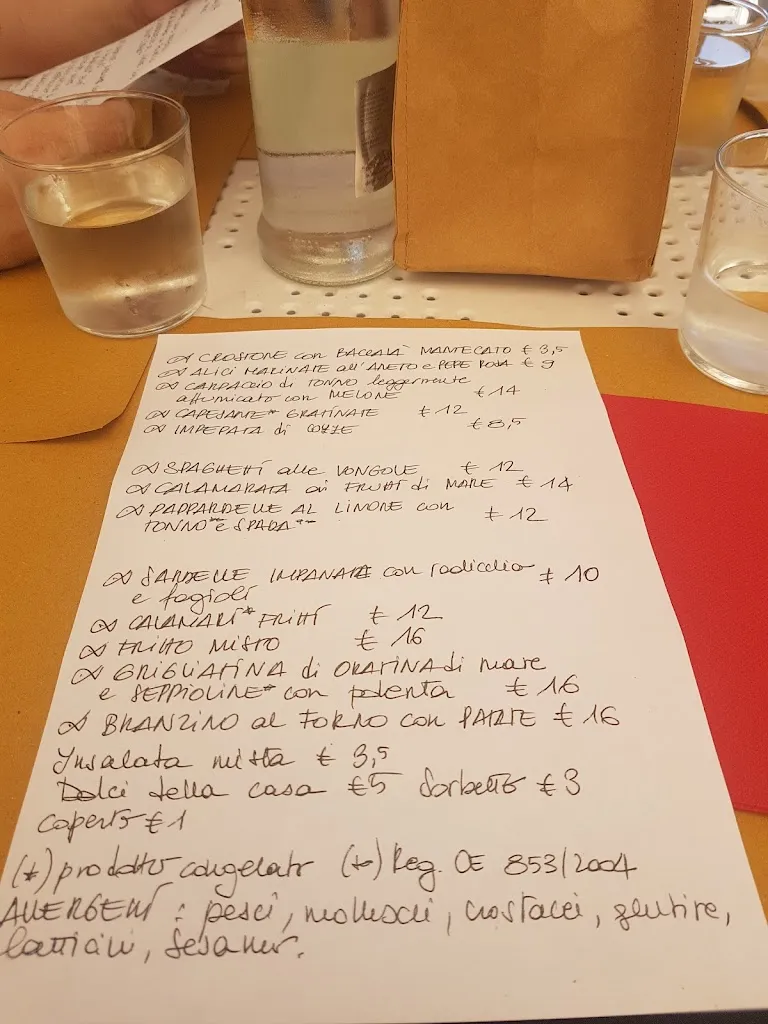 CROSTONE con BACCALÀ MANTECATO € 3,5
ALICI MARINATE all'ANETO e PEPE ROSA € 9
CARPACCIO di TONNO leggermente
affumicato con MELONE € 14
CAPESANTE* GRATINATE € 12
IMPEPATA di COZZE € 8,5
SPAGHETTI alle VONGOLE € 12
CALAMARATA ai FRUTTI di MARE € 14
PAPPARDELLE AL LIMONE con
TONNO** e SPADA** € 12
SARDELLE IMPANATE con radicchio € 10
e fagioli
CALAMARI* FRITTI € 12
FRITTO MISTO € 16
GRIGLIATINA di ORATINA di mare
e SEPPIOLINE* con polenta € 16
BRANZINO al FORNO con PATATE € 16
Insalata mista € 3,5
Dolci della casa €5 Sorbetto € 3
coperto € 1
(*) prodotto congelato (**) Reg. CE 853/2004
ALLERGENI : pesci, molluschi, crostacei, glutine,
latticini, sesamo.